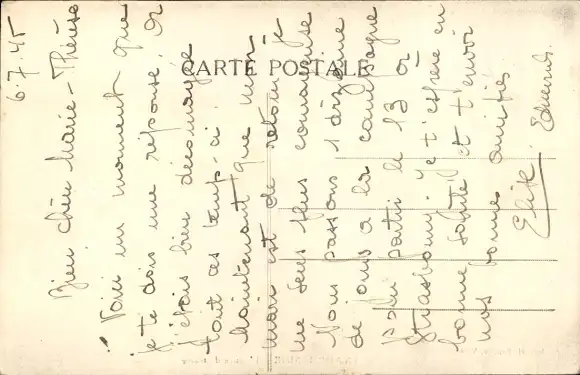 CARTE POSTALE
6.7.45
Bien chère Marie-Thérèse
Voici un moment que
je te dois une réponse. Or
j'étais bien découragée
tout ces temps-ci.
Maintenant que mon
mari est de retour je
me sens plus courageuse
Nous passons 1 dizaine
de jours à la campagne
pour partir le 13 à
Strasbourg. Je t'espère en
bonne santé et t'envoi
nos bonnes amitiés
Elise. Edmond.